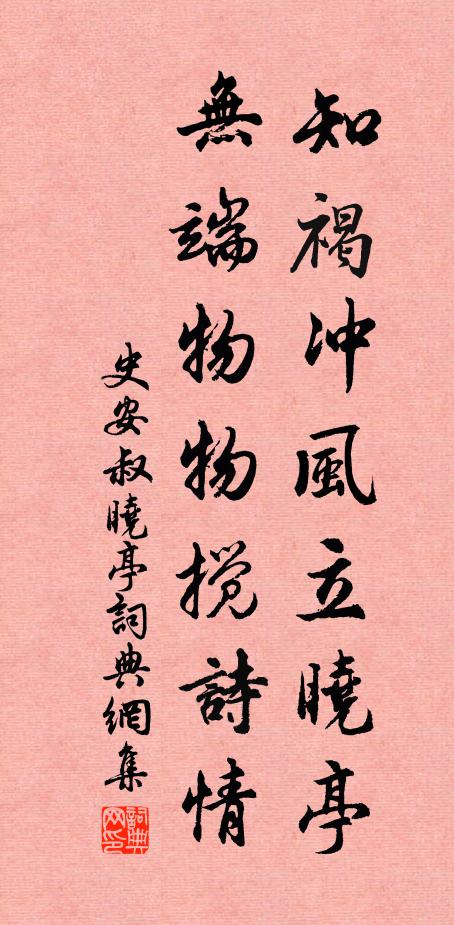 知褐冲風立曉亭
無端物物攪詩情
史安叔曉亭詞典網集
詞典网印